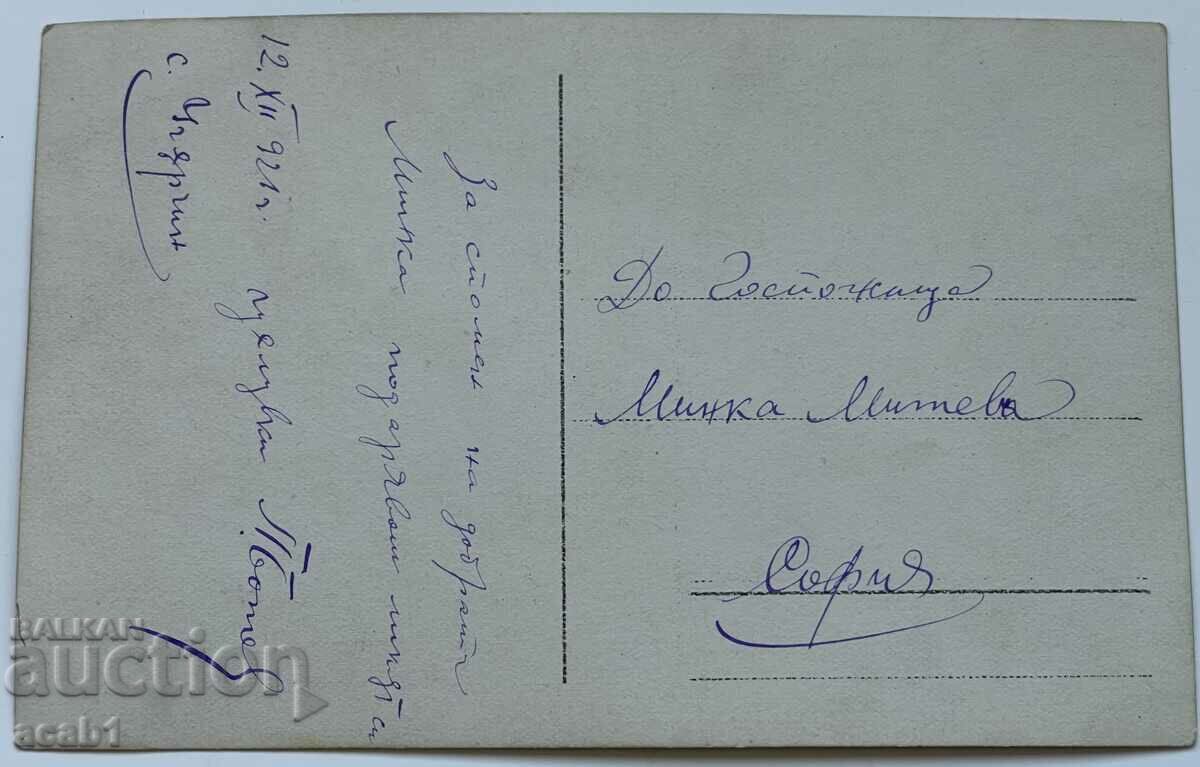 За спомен на добрата
Минка подарявам ликът си
12. XII 921 г. целувки
с. Угърчин
До Госпожица
Минка Митева
София
BALKAN
auction
acab1